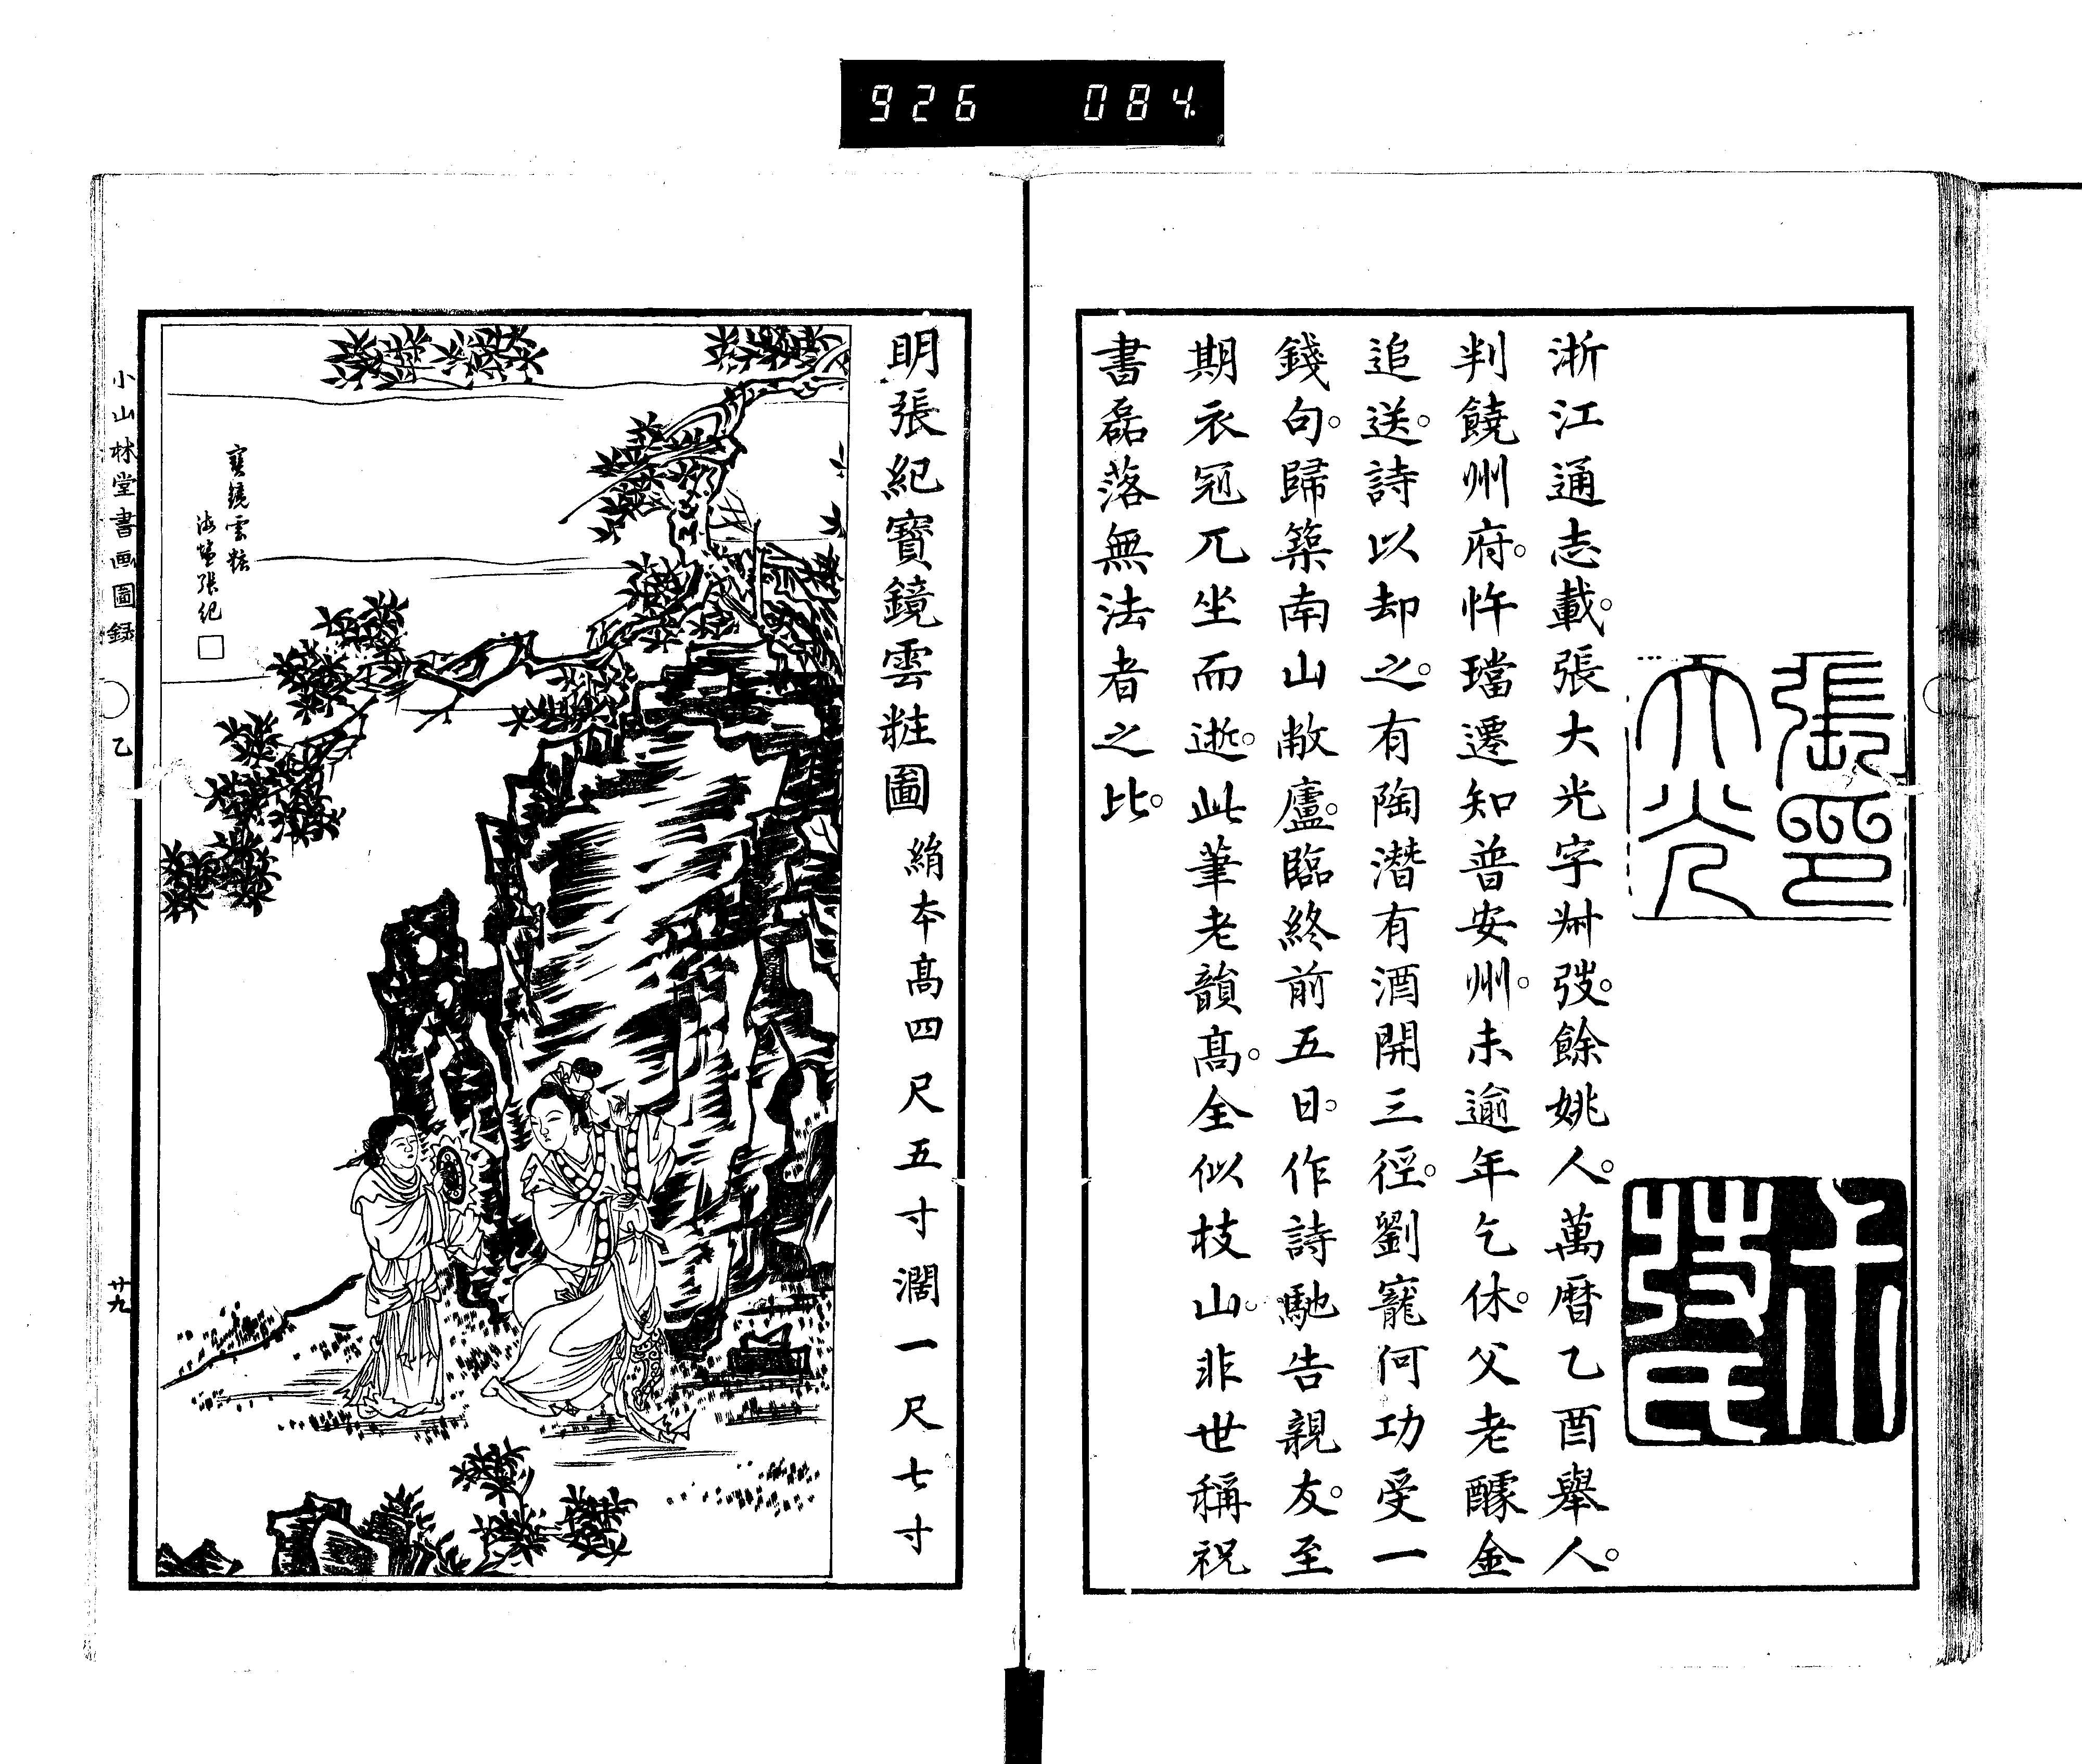 926 084
張印
大光
浙江通志載。張大光字叔弢。餘姚人。萬曆乙酉舉人。
判饒州府。忤璫遷知普安州。未逾年乞休。父老醵金
追送。詩以却之。有陶潛有酒開三徑。劉寵何功受一
錢句。歸築南山敝廬。臨終前五日。作詩馳告親友。至
期衣冠兀坐而逝。此筆老韻高。全似枝山。非世稱祝
書磊落無法者之比。
明張紀寶鏡雲粧圖 絹本高四尺五寸濶一尺七寸
寶鏡雲粧
張紀
小山林堂書画圖録 乙 廿九